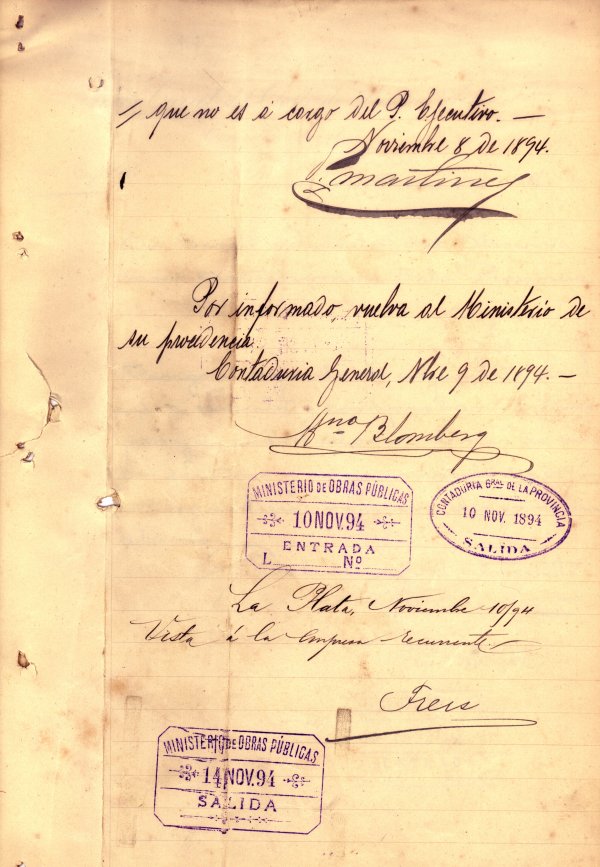 que no es á cargo del P. Ejecutivo. —
Noviembre 8 de 1894.
Martinez
Por informado, vuelva al Ministerio de
su procedencia.
Contaduria General, Nbe 9 de 1894. —
Blomberg
MINISTERIO DE OBRAS PÚBLICAS
10 NOV. 94
ENTRADA
L. Nº
CONTADURIA GRAL DE LA PROVINCIA
10 NOV. 1894
SALIDA
La Plata, Noviembre 10/94
Vista á la empresa recurrente.
MINISTERIO DE OBRAS PÚBLICAS
14 NOV. 94
SALIDA